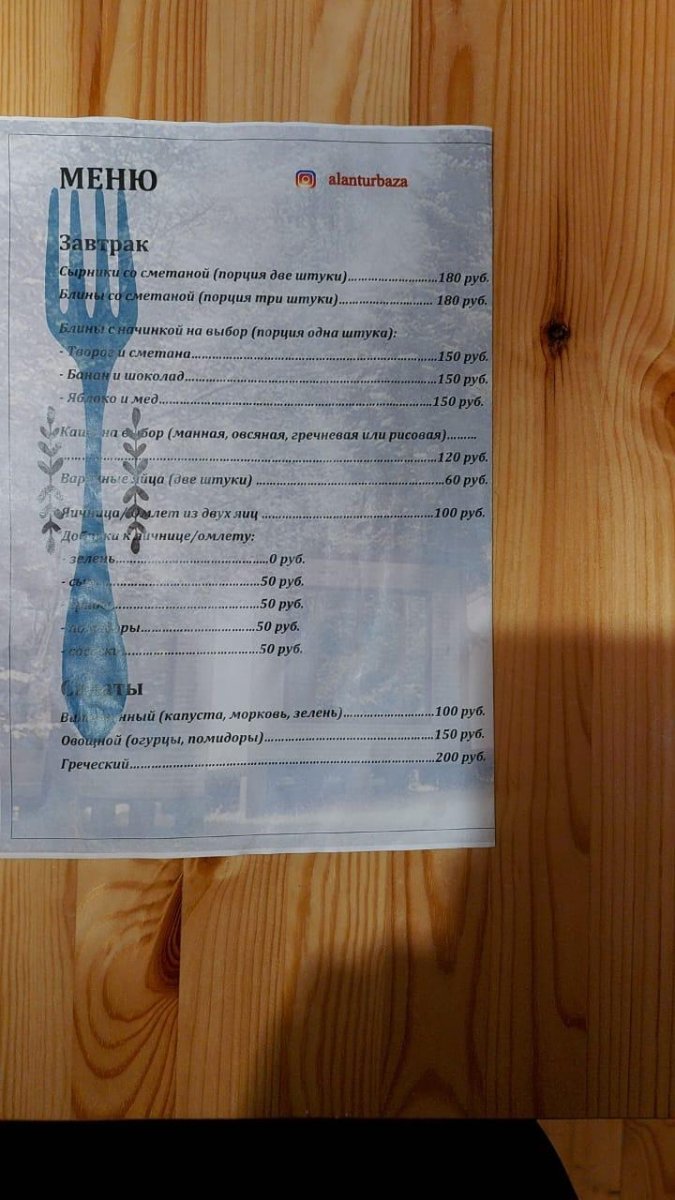 МЕНЮ
alanturbaza
Завтрак
Сырники со сметаной (порция две штуки)..........................180 руб.
Блины со сметаной (порция три штуки)............................ 180 руб.
Блины с начинкой на выбор (порция одна штука):
- Творог и сметана......................................................................150 руб.
- Банан и шоколад........................................................................150 руб.
- Яблоко и мед..............................................................................150 руб.
Каша на выбор (манная, овсяная, гречневая или рисовая).........
..........................................................................................................120 руб.
Вареные яйца (две штуки) .....................................................60 руб.
Яичница/Омлет из двух яиц .................................................100 руб.
Добавки к яичнице/омлету:
- зелень...........................................0 руб.
- сыр................................................50 руб.
..........50 руб.
- помидоры.................................50 руб.
- сосиски.......................................50 руб.
Салаты
(капуста, морковь, зелень)..........................100 руб.
Овощной (огурцы, помидоры)................................................150 руб.
Греческий.......................................................................................200 руб.